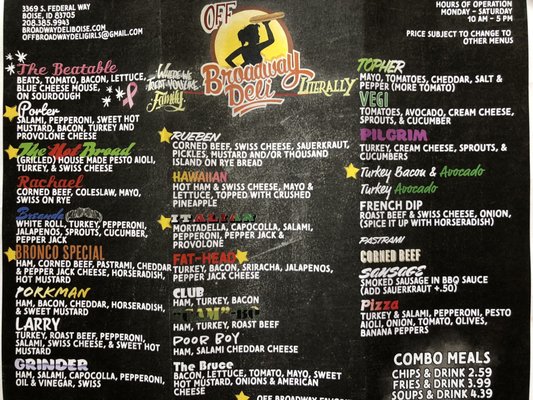 3369 S. FEDERAL WAY
BOISE, ID 83705
208.385.9943
BROADWAYDELIBOISE.COM
OFFBROADWAYDELIGIRLS@GMAIL.COM
The Beatable
BEATS, TOMATO, BACON, LETTUCE,
BLUE CHEESE MOUSE,
ON SOURDOUGH
Porter
SALAMI, PEPPERONI, SWEET HOT
MUSTARD, BACON, TURKEY AND
PROVOLONE CHEESE
The Hot Broad
(GRILLED) HOUSE MADE PESTO AIOLI,
TURKEY, & SWISS CHEESE
Rachael
CORNED BEEF, COLESLAW, MAYO,
SWISS ON RYE
Brenda
WHITE ROLL, TURKEY, PEPPERONI,
JALAPENOS, SPROUTS, CUCUMBER,
PEPPER JACK
BRONCO SPECIAL
HAM, CORNED BEEF, PASTRAMI, CHEDDAR
& PEPPER JACK CHEESE, HORSERADISH,
HOT MUSTARD
PORKMAN
HAM, BACON, CHEDDAR, HORSERADISH,
& SWEET MUSTARD
LARRY
TURKEY, ROAST BEEF, PEPPERONI,
SALAMI, SWISS CHEESE, & SWEET HOT
MUSTARD
GRINDER
HAM, SALAMI, CAPOCOLLA, PEPPERONI,
OIL & VINEGAR, SWISS
OFF
Broadway
Deli
LITERALLY
WHERE WE
TREAT YOU LIKE
Family
RUEBEN
CORNED BEEF, SWISS CHEESE, SAUERKRAUT,
PICKLES, MUSTARD AND/OR THOUSAND
ISLAND ON RYE BREAD
HAWAIIAN
HOT HAM & SWISS CHEESE, MAYO &
LETTUCE, TOPPED WITH CRUSHED
PINEAPPLE
ITALIAN
MORTADELLA, CAPOCOLLA, SALAMI,
PEPPERONI, PEPPER JACK &
PROVOLONE
FAT-HEAD
TURKEY, BACON, SRIRACHA, JALAPENOS,
PEPPER JACK CHEESE
CLUB
HAM, TURKEY, BACON
HAM, TURKEY, ROAST BEEF
POOR BOY
HAM, SALAMI CHEDDAR CHEESE
The Bruce
BACON, LETTUCE, TOMATO, MAYO, SWEET
HOT MUSTARD, ONIONS & AMERICAN
CHEESE
OFF BROADWAY
HOURS OF OPERATION
MONDAY - SATURDAY
10 AM - 5 PM
PRICE SUBJECT TO CHANGE TO
OTHER MENUS
TOPHER
MAYO, TOMATOES, CHEDDAR, SALT &
PEPPER (MORE TOMATO)
VEGI
TOMATOES, AVOCADO, CREAM CHEESE,
SPROUTS, & CUCUMBER
PILGRIM
TURKEY, CREAM CHEESE, SPROUTS, &
CUCUMBERS
Turkey Bacon & Avocado
Turkey Avocado
FRENCH DIP
ROAST BEEF & SWISS CHEESE, ONION,
(SPICE IT UP WITH HORSERADISH)
PASTRAMI
CORNED BEEF
SAUSAGE
SMOKED SAUSAGE IN BBQ SAUCE
(ADD SAUERKRAUT +.50)
Pizza
TURKEY & SALAMI, PEPPERONI, PESTO
AIOLI, ONION, TOMATO, OLIVES,
BANANA PEPPERS
COMBO MEALS
CHIPS & DRINK 2.59
FRIES & DRINK 3.99
SOUPS & DRINK 4.39